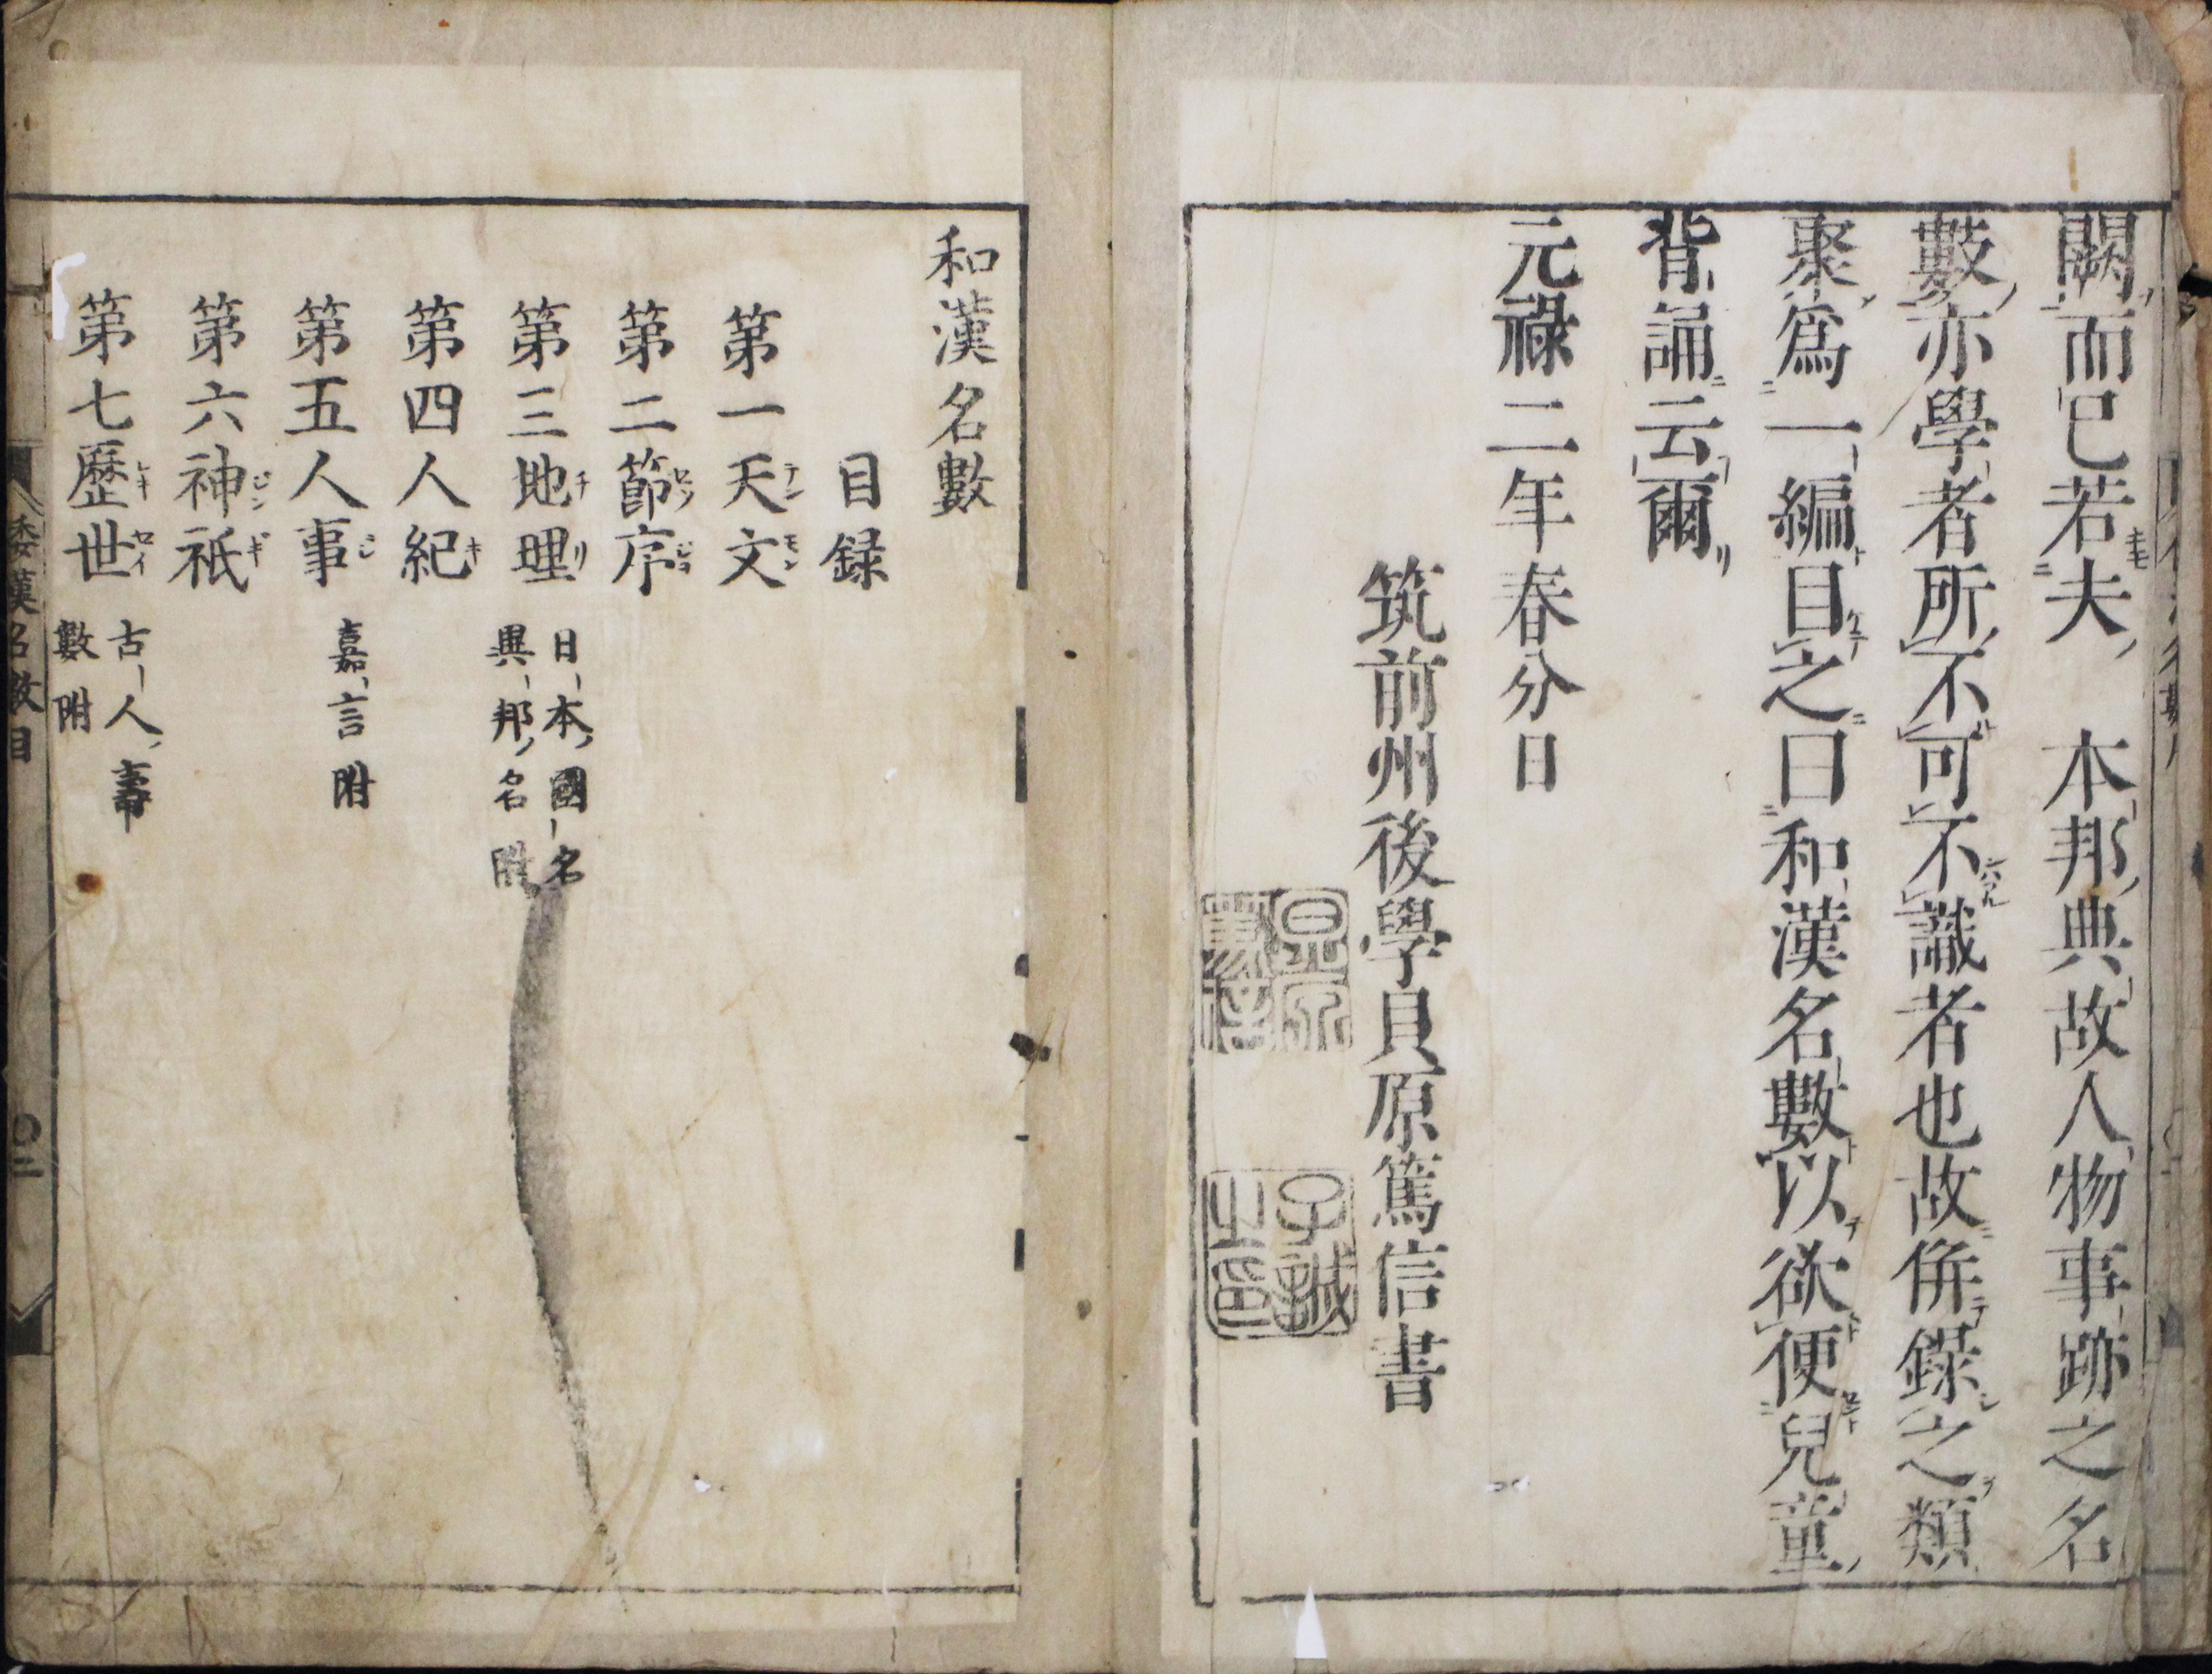 闕而已若夫　本邦典故人物事跡之名
數亦學者所不可不識者也故併錄之類
聚爲一編目之曰和漢名數以欲便兒童
背誦云爾
元祿二年春分日
筑前州後學貝原篤信書
子誠
之印
和漢名數
目録
第一天文
第二節序
第三地理 日本國名
異邦名附
第四人紀
第五人事 嘉言附
第六神祇
第七歷世 古人壽
數附